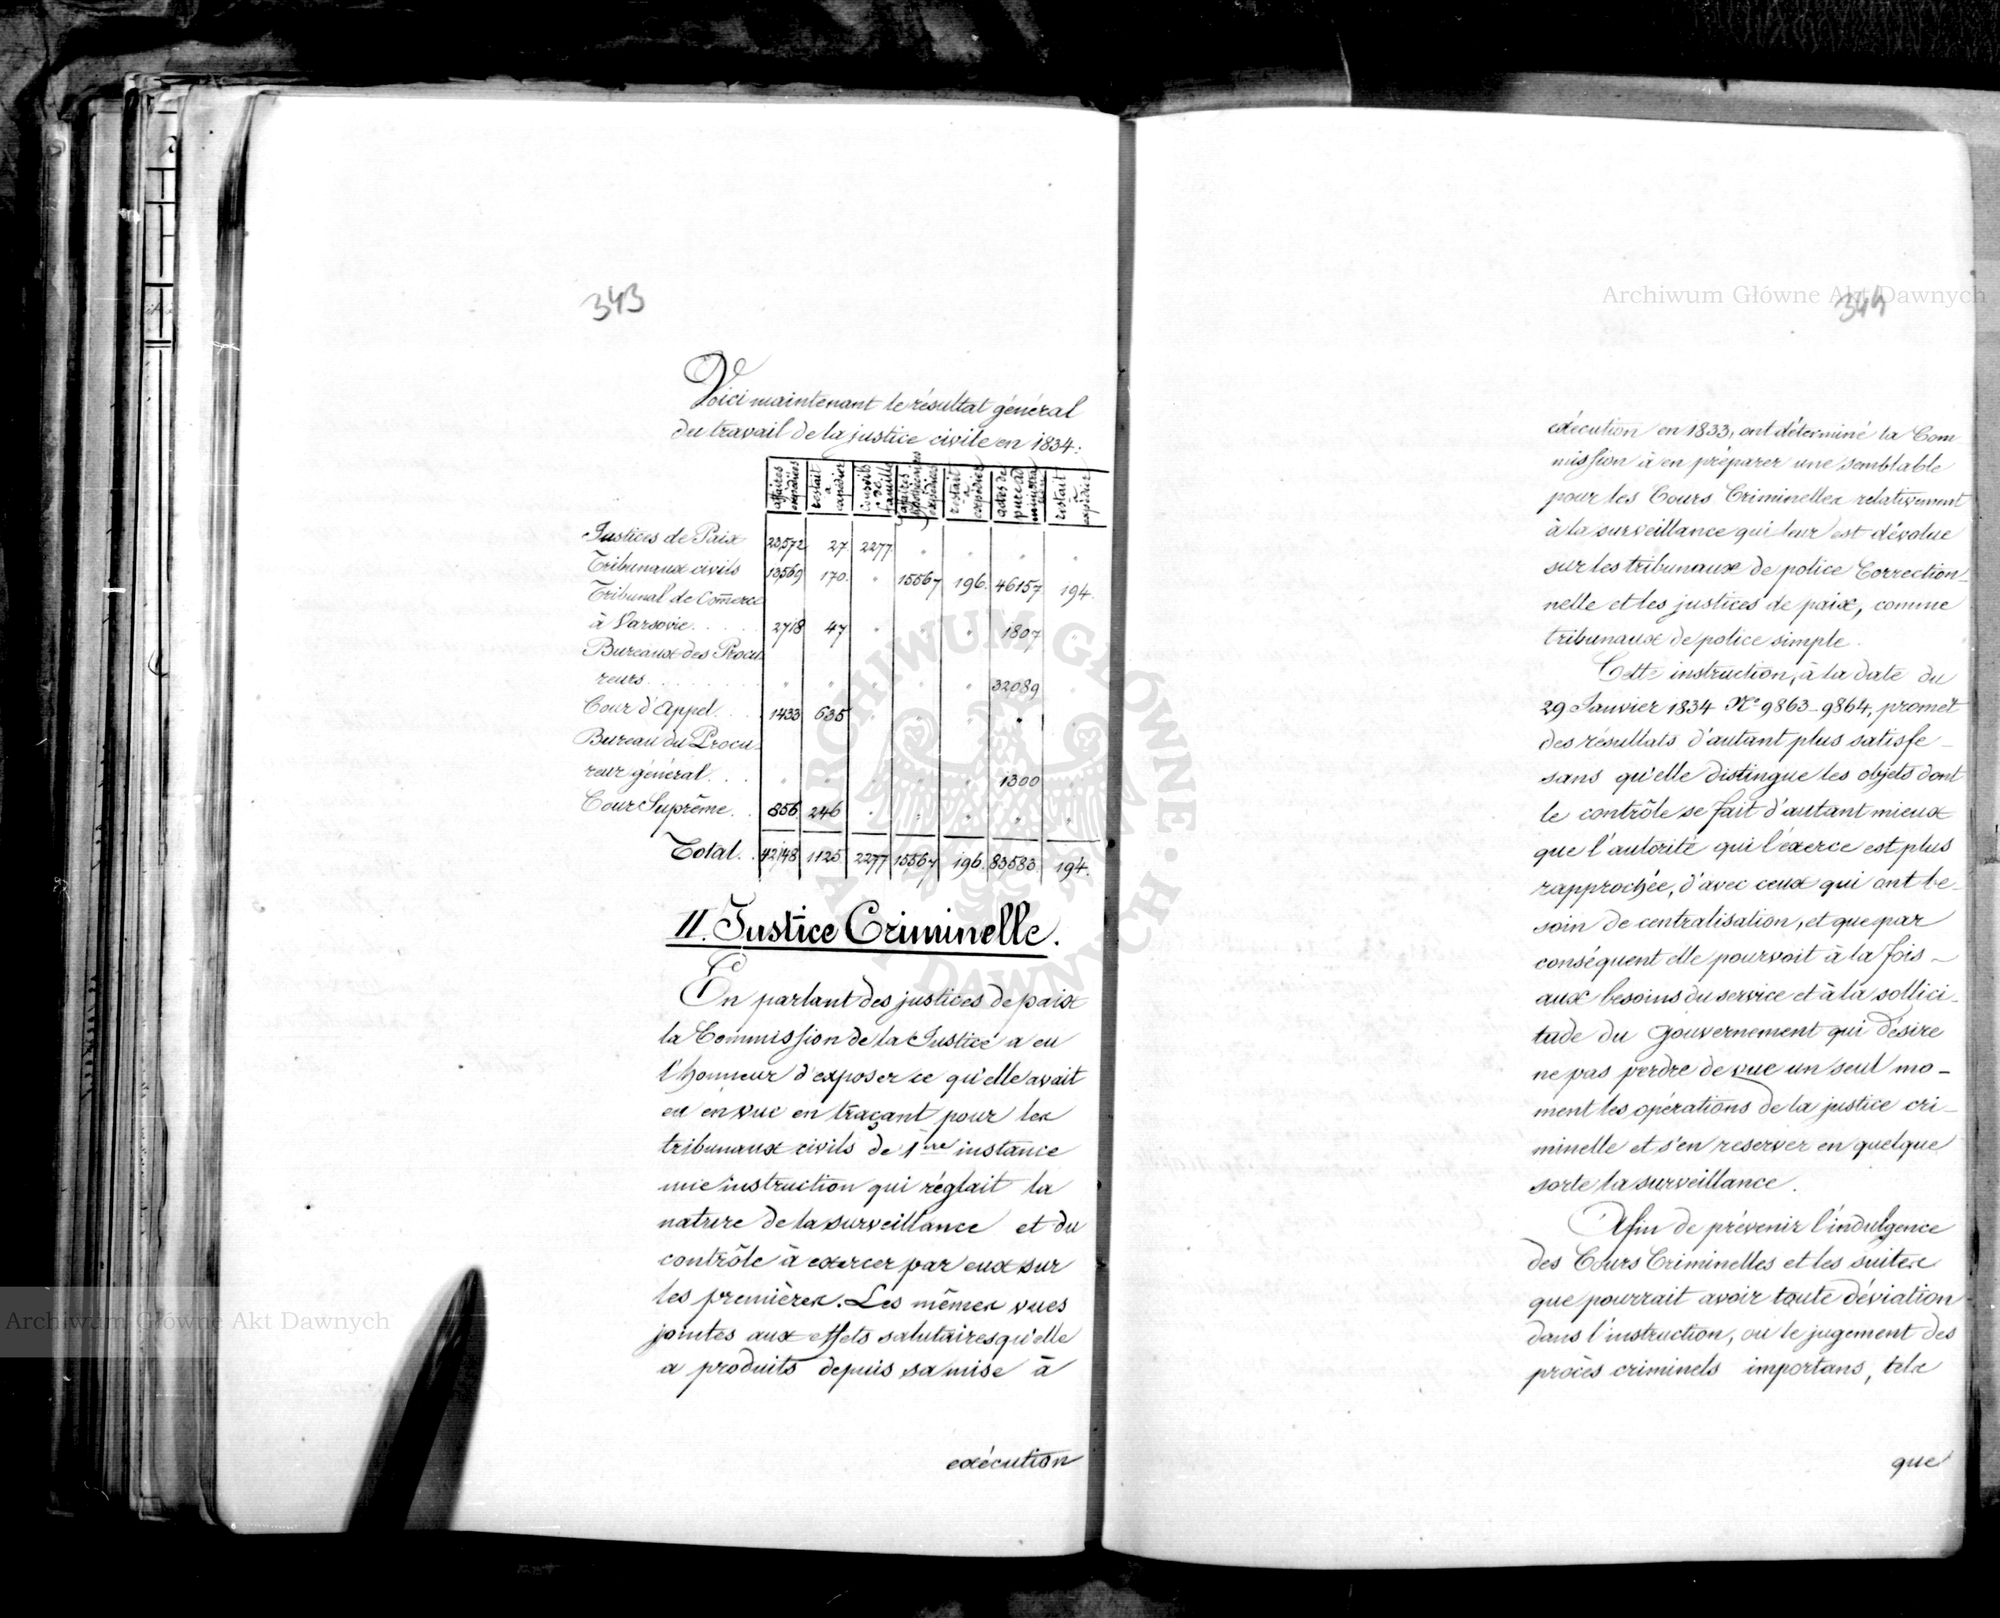 343
Voici maintenant le résultat général
du travail de la justice civile en 1834:
affaires expédiées | restait à expédier | conseils de famille | affaires expédiées | restait à expédier | actes de pure administration | restait à expédier
Justices de Paix 23,572 27. 2277. " " " "
Tribunaux civils 13569 170. " 15567 196. 46157. 194.
Tribunal de Comerce
à Varsovie. . . . . 2718 47 " " " 1807 "
Bureaux des Procu
reurs . . . . . . . . " " " " " 32089 "
Cour d'Appel. . . . 1433 635 " " " " "
Bureau du Procu-
reur général. . . . " " " " " 1300 "
Cour Suprême. . . 856 246 " " " " "
Total. . 42,148 1125. 2277 15567 196. 83583. 194.
II. Justice Criminelle.
En parlant des justices de paix
la Commission de la Justice a eu
l'honneur d'exposer ce qu'elle avait
eu en vue en traçant pour les
tribunaux civils de 1ère instance
une instruction qui réglait la
nature de la surveillance et du
contrôle à exercer par eux sur
les premières. Les mêmes vues
jointes aux effets salutaires qu'elle
a produits depuis sa mise à
exécution
344
exécution en 1833, ont déterminé la Com
mission à en préparer une semblable
pour les Cours Criminelles relativement
à la surveillance qui leur est dévolue
sur les tribunaux de police Correction-
nelle et les justices de paix, comme
tribunaux de police simple.
Cette instruction, à la date du
29 Janvier 1834 No 9863-9864, promet
des résultats d'autant plus satisfe-
sans qu'elle distingue les objets dont
le contrôle se fait d'autant mieux
que l'autorité qui l'éxerce est plus
rapprochée, d'avec ceux qui ont be-
soin de centralisation, et que par
conséquent elle pourvoit à la fois -
aux besoins du service et à la sollici-
tude du Gouvernement qui désire
ne pas perdre de vue un seul mo-
ment les opérations de la justice cri-
minelle et s'en reserver en quelque
sorte la surveillance.
Afin de prévenir l'indulgence
des Cours Criminelles et les suites
que pourrait avoir toute déviation
dans l'instruction, ou le jugement des
procès criminels importans, tels
que
Archiwum Główne Akt Dawnych
Archiwum Główne Akt Dawnych
ARCHIWUM GŁÓWNE AKT DAWNYCH